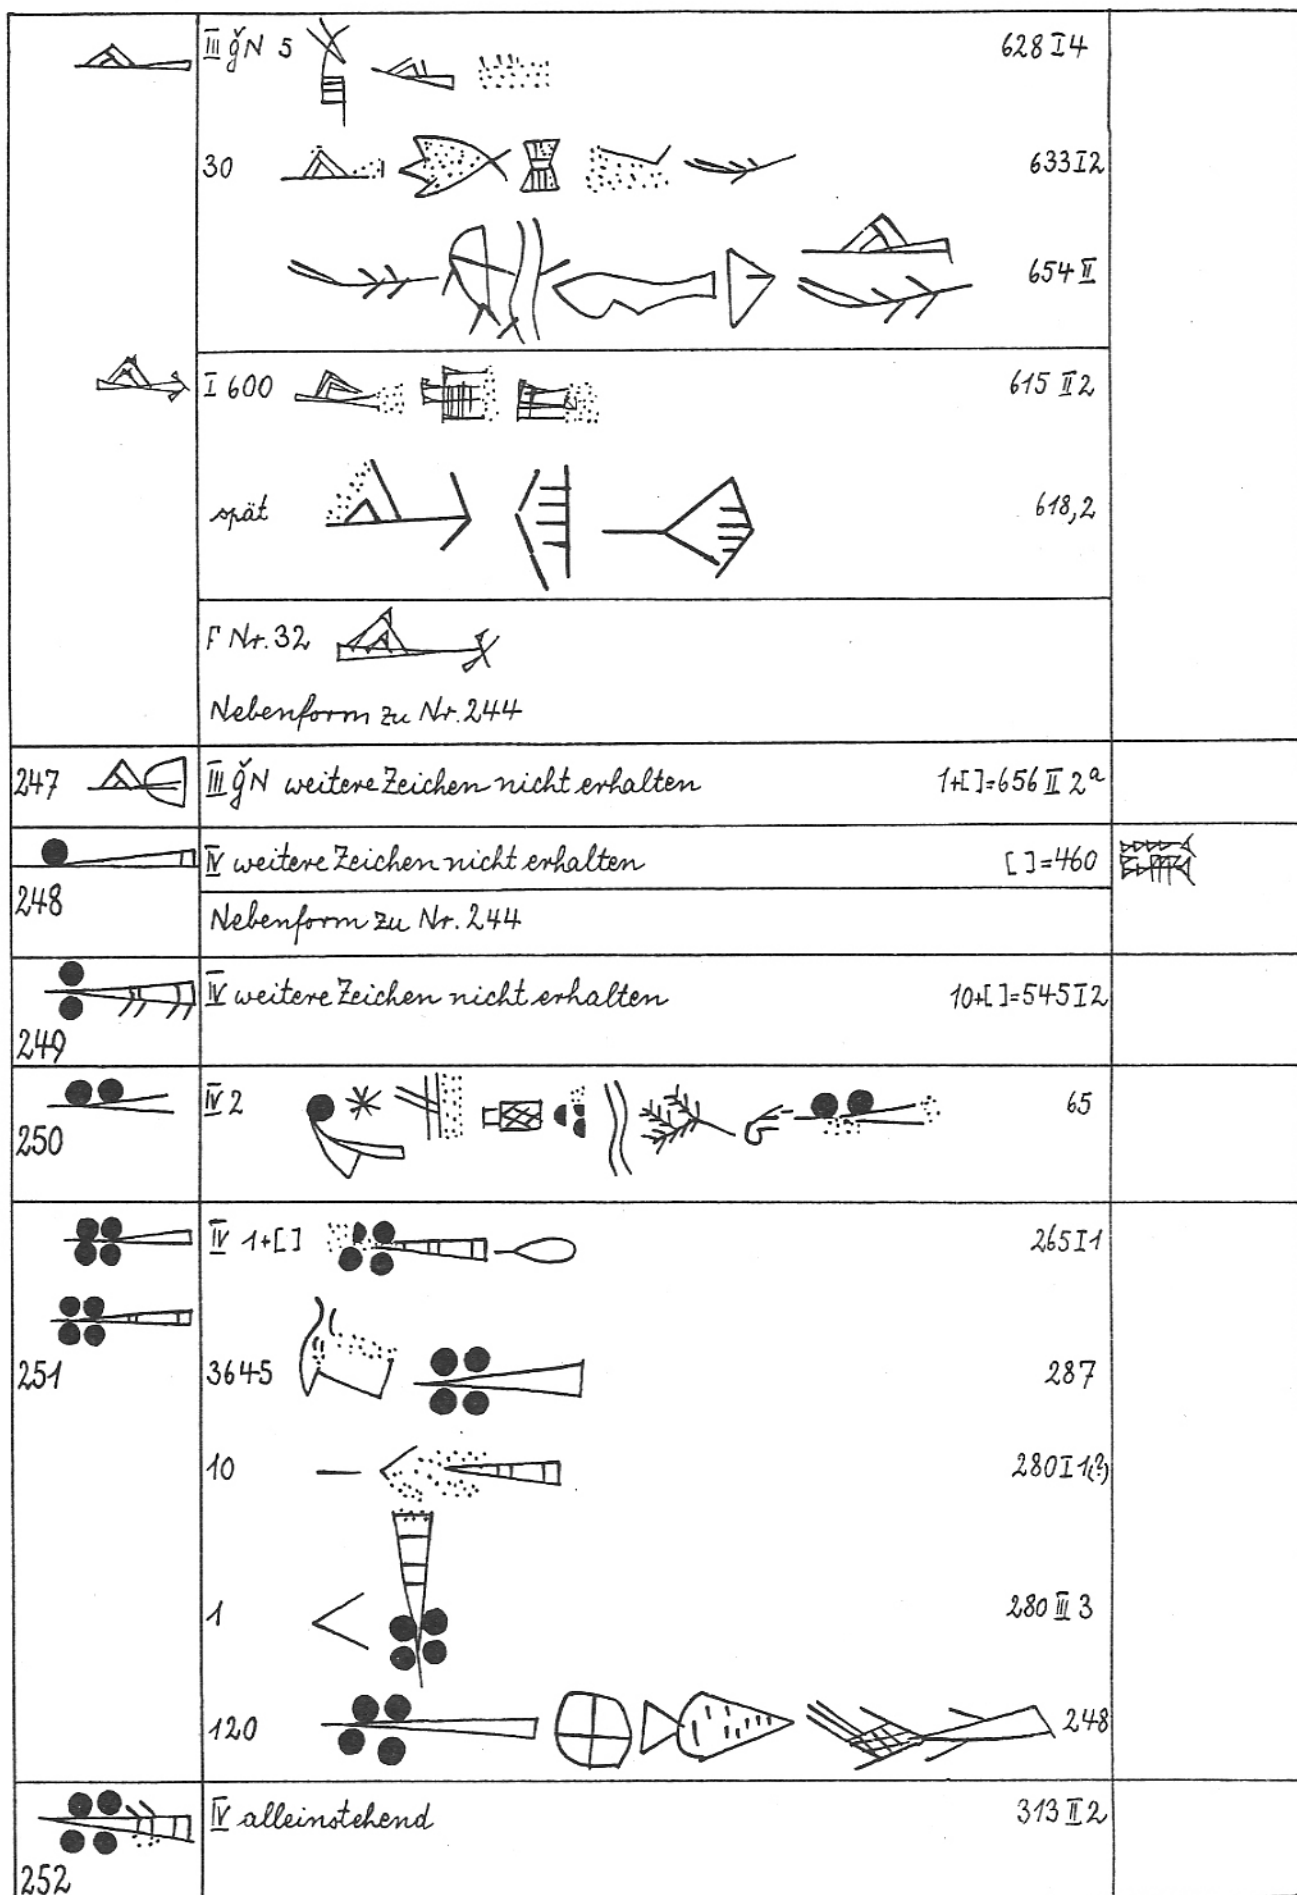 III ǧN 5 628 I 4
30 633 I 2
654 II
I 600 615 II 2
spät 618,2
F Nr. 32
Nebenform zu Nr. 244
247 III ǧN weitere Zeichen nicht erhalten 1+[ ]=656 II 2ª
IV weitere Zeichen nicht erhalten [ ]=460
248
Nebenform zu Nr. 244
IV weitere Zeichen nicht erhalten 10+[ ]=545 I 2
249
IV 2 65
250
IV 1+[ ] 265 I 1
251 3645 287
10 280 I 1(?)
1 280 III 3
120 248
IV alleinstehend 313 II 2
252